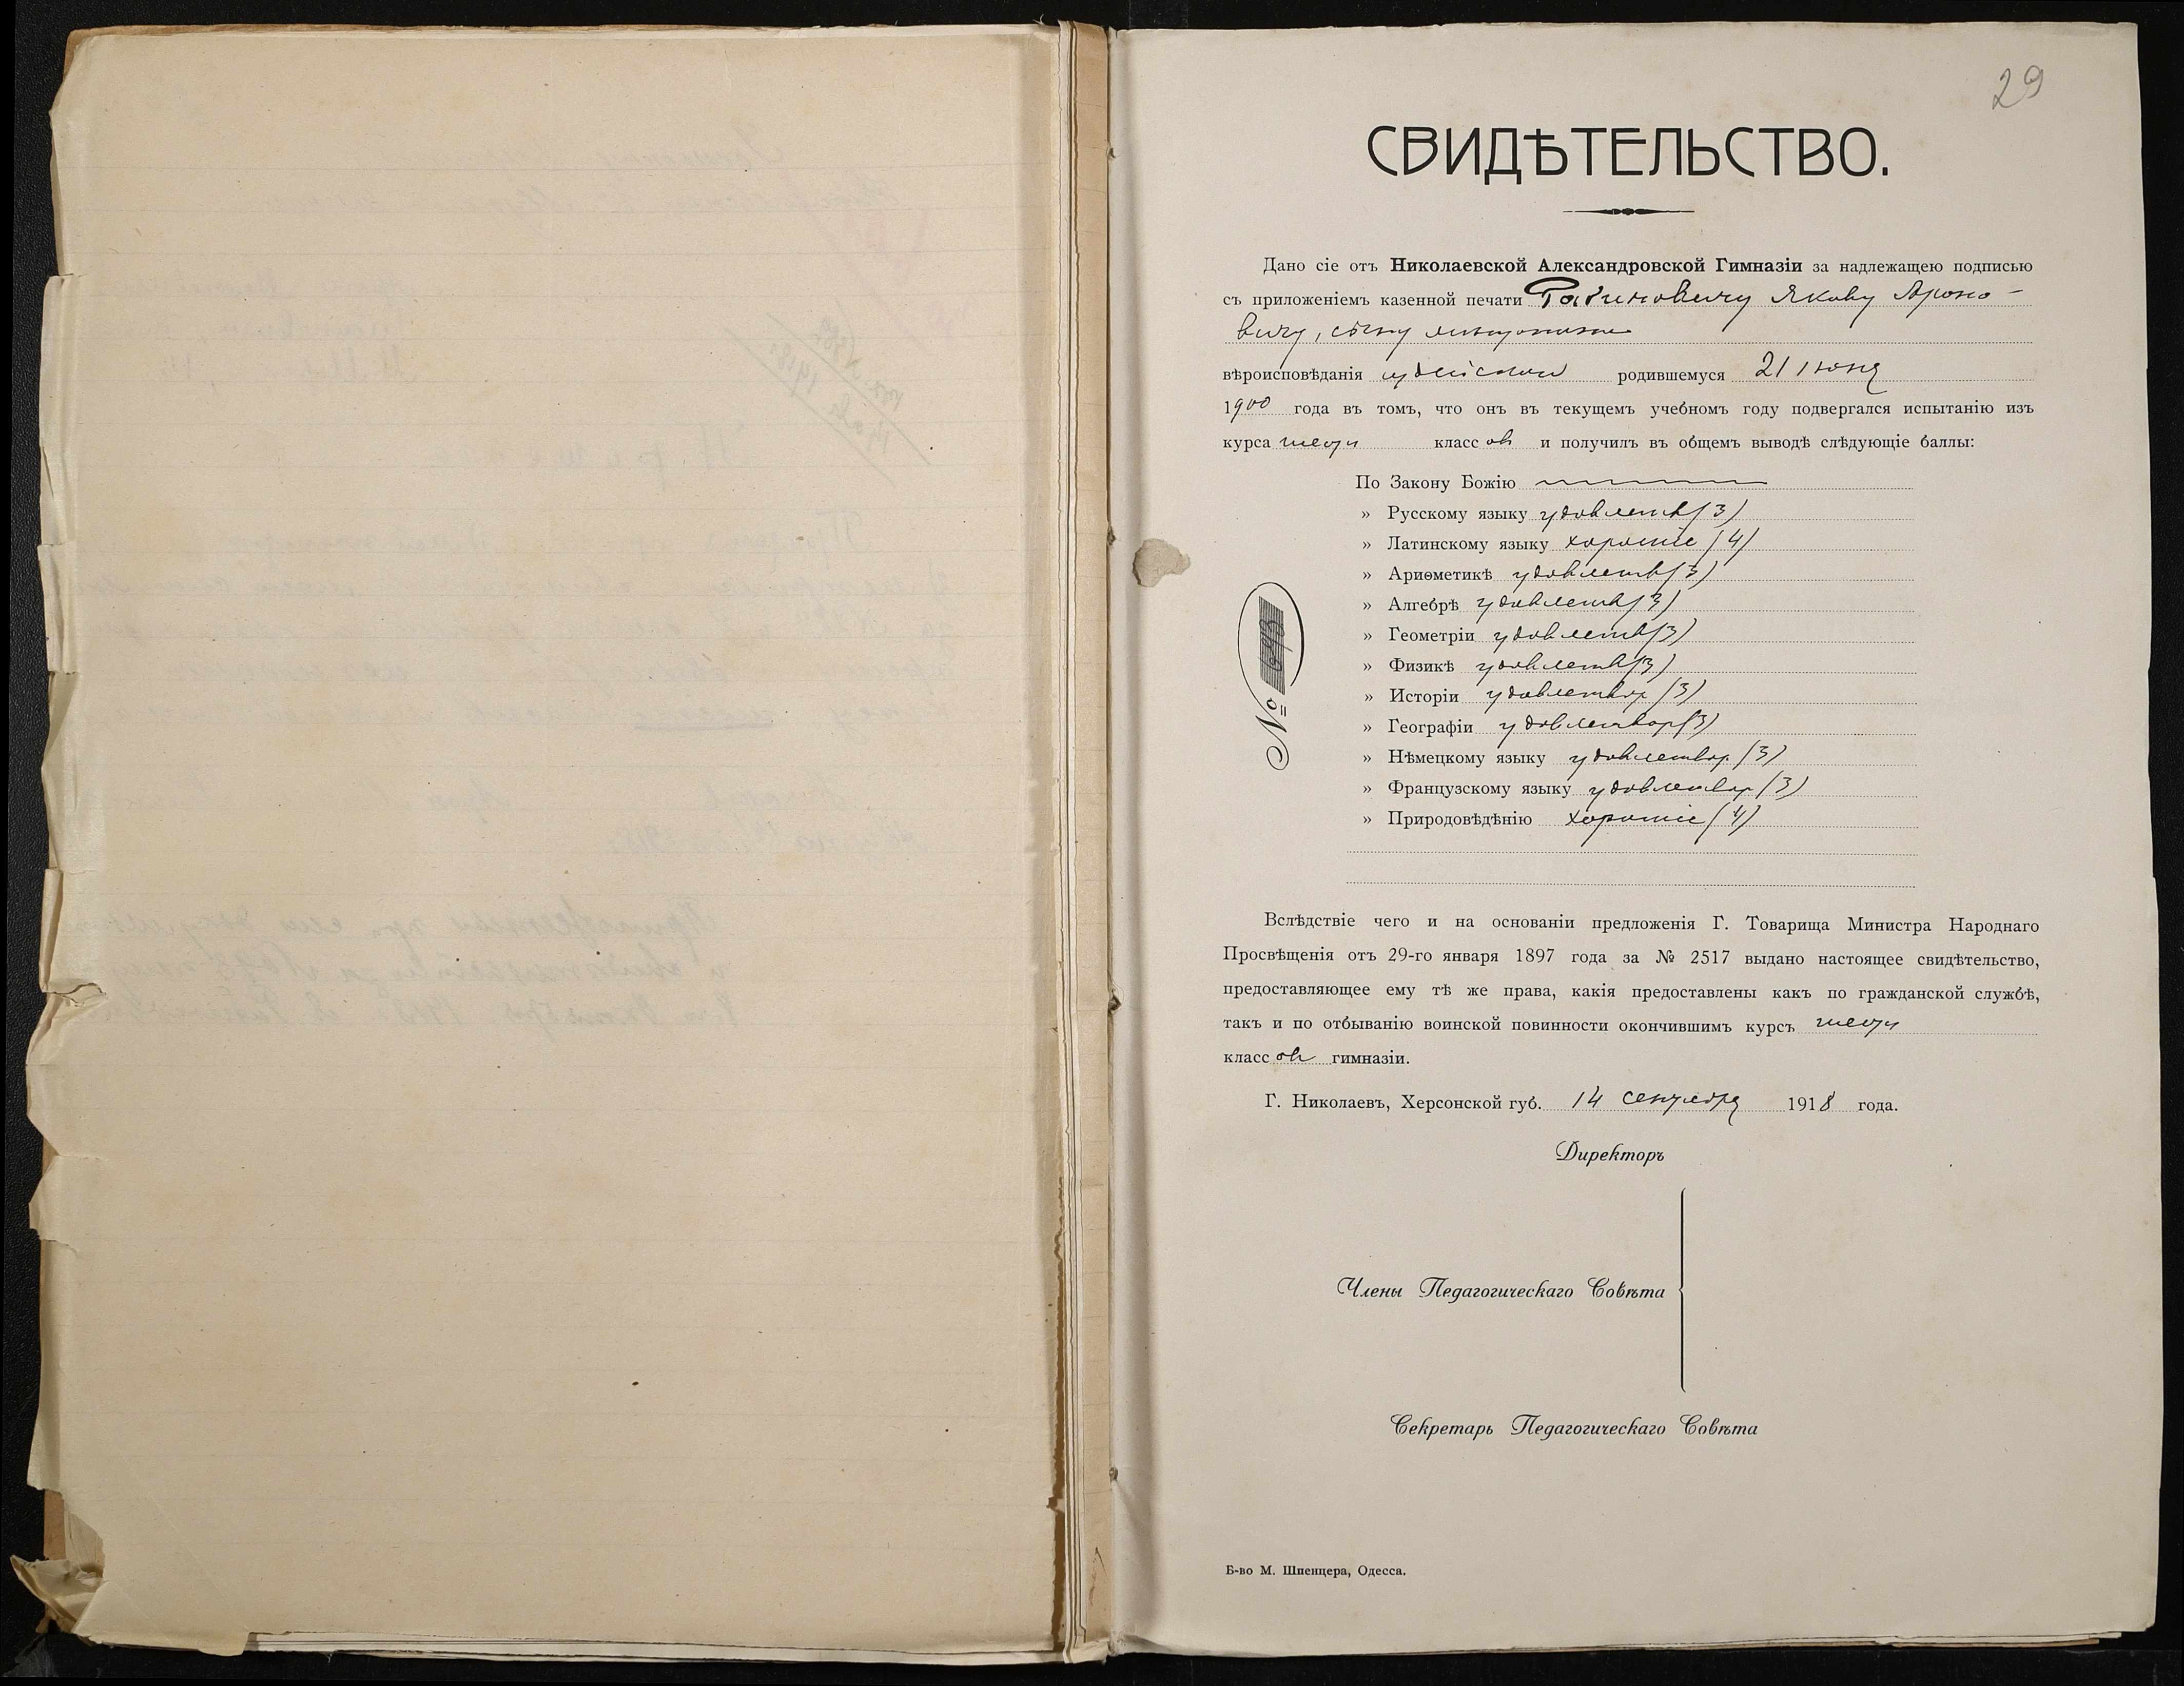 29
СВИДѢТЕЛЬСТВО.
Дано сіе отъ Николаевской Александровской Гимназіи за надлежащею подписью
съ приложеніемъ казенной печати Рабиновичу Якову Ароно-
вичу, сыну
вѣроисповѣданія іудейскаго родившемуся 21 іюня
1900 года въ томъ, что онъ въ текущемъ учебномъ году подвергался испытанію изъ
курса шести классовъ и получилъ въ общемъ выводѣ слѣдующіе баллы:
По Закону Божію
» Русскому языку удовлетв (3)
» Латинскому языку хорошіе (4)
» Ариѳметикѣ удовлетв (3)
» Алгебрѣ удовлетв (3)
» Геометріи удовлетв (3)
» Физикѣ удовлетв (3)
» Исторіи удовлетвор (3)
» Географіи удовлетвор (3)
» Нѣмецкому языку удовлетвор. (3)
» Французскому языку удовлетвор (3)
» Природовѣдѣнію хорошіе (4)
№ 693
Вслѣдствіе чего и на основаніи предложенія Г. Товарища Министра Народнаго
Просвѣщенія отъ 29-го января 1897 года за № 2517 выдано настоящее свидѣтельство,
предоставляющее ему тѣ же права, какія предоставлены какъ по гражданской службѣ,
такъ и по отбыванію воинской повинности окончившимъ курсъ шести
классовъ гимназіи.
Г. Николаевъ, Херсонской губ. 14 сентября 1918 года.
Директоръ
Члены Педагогическаго Совѣта
Секретарь Педагогическаго Совѣта
Б-во М. Шпенцера, Одесса.